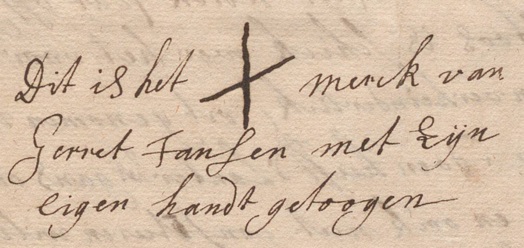 Dit is het merck van
Gerret Jansen met Zijn
eigen handt getoogen